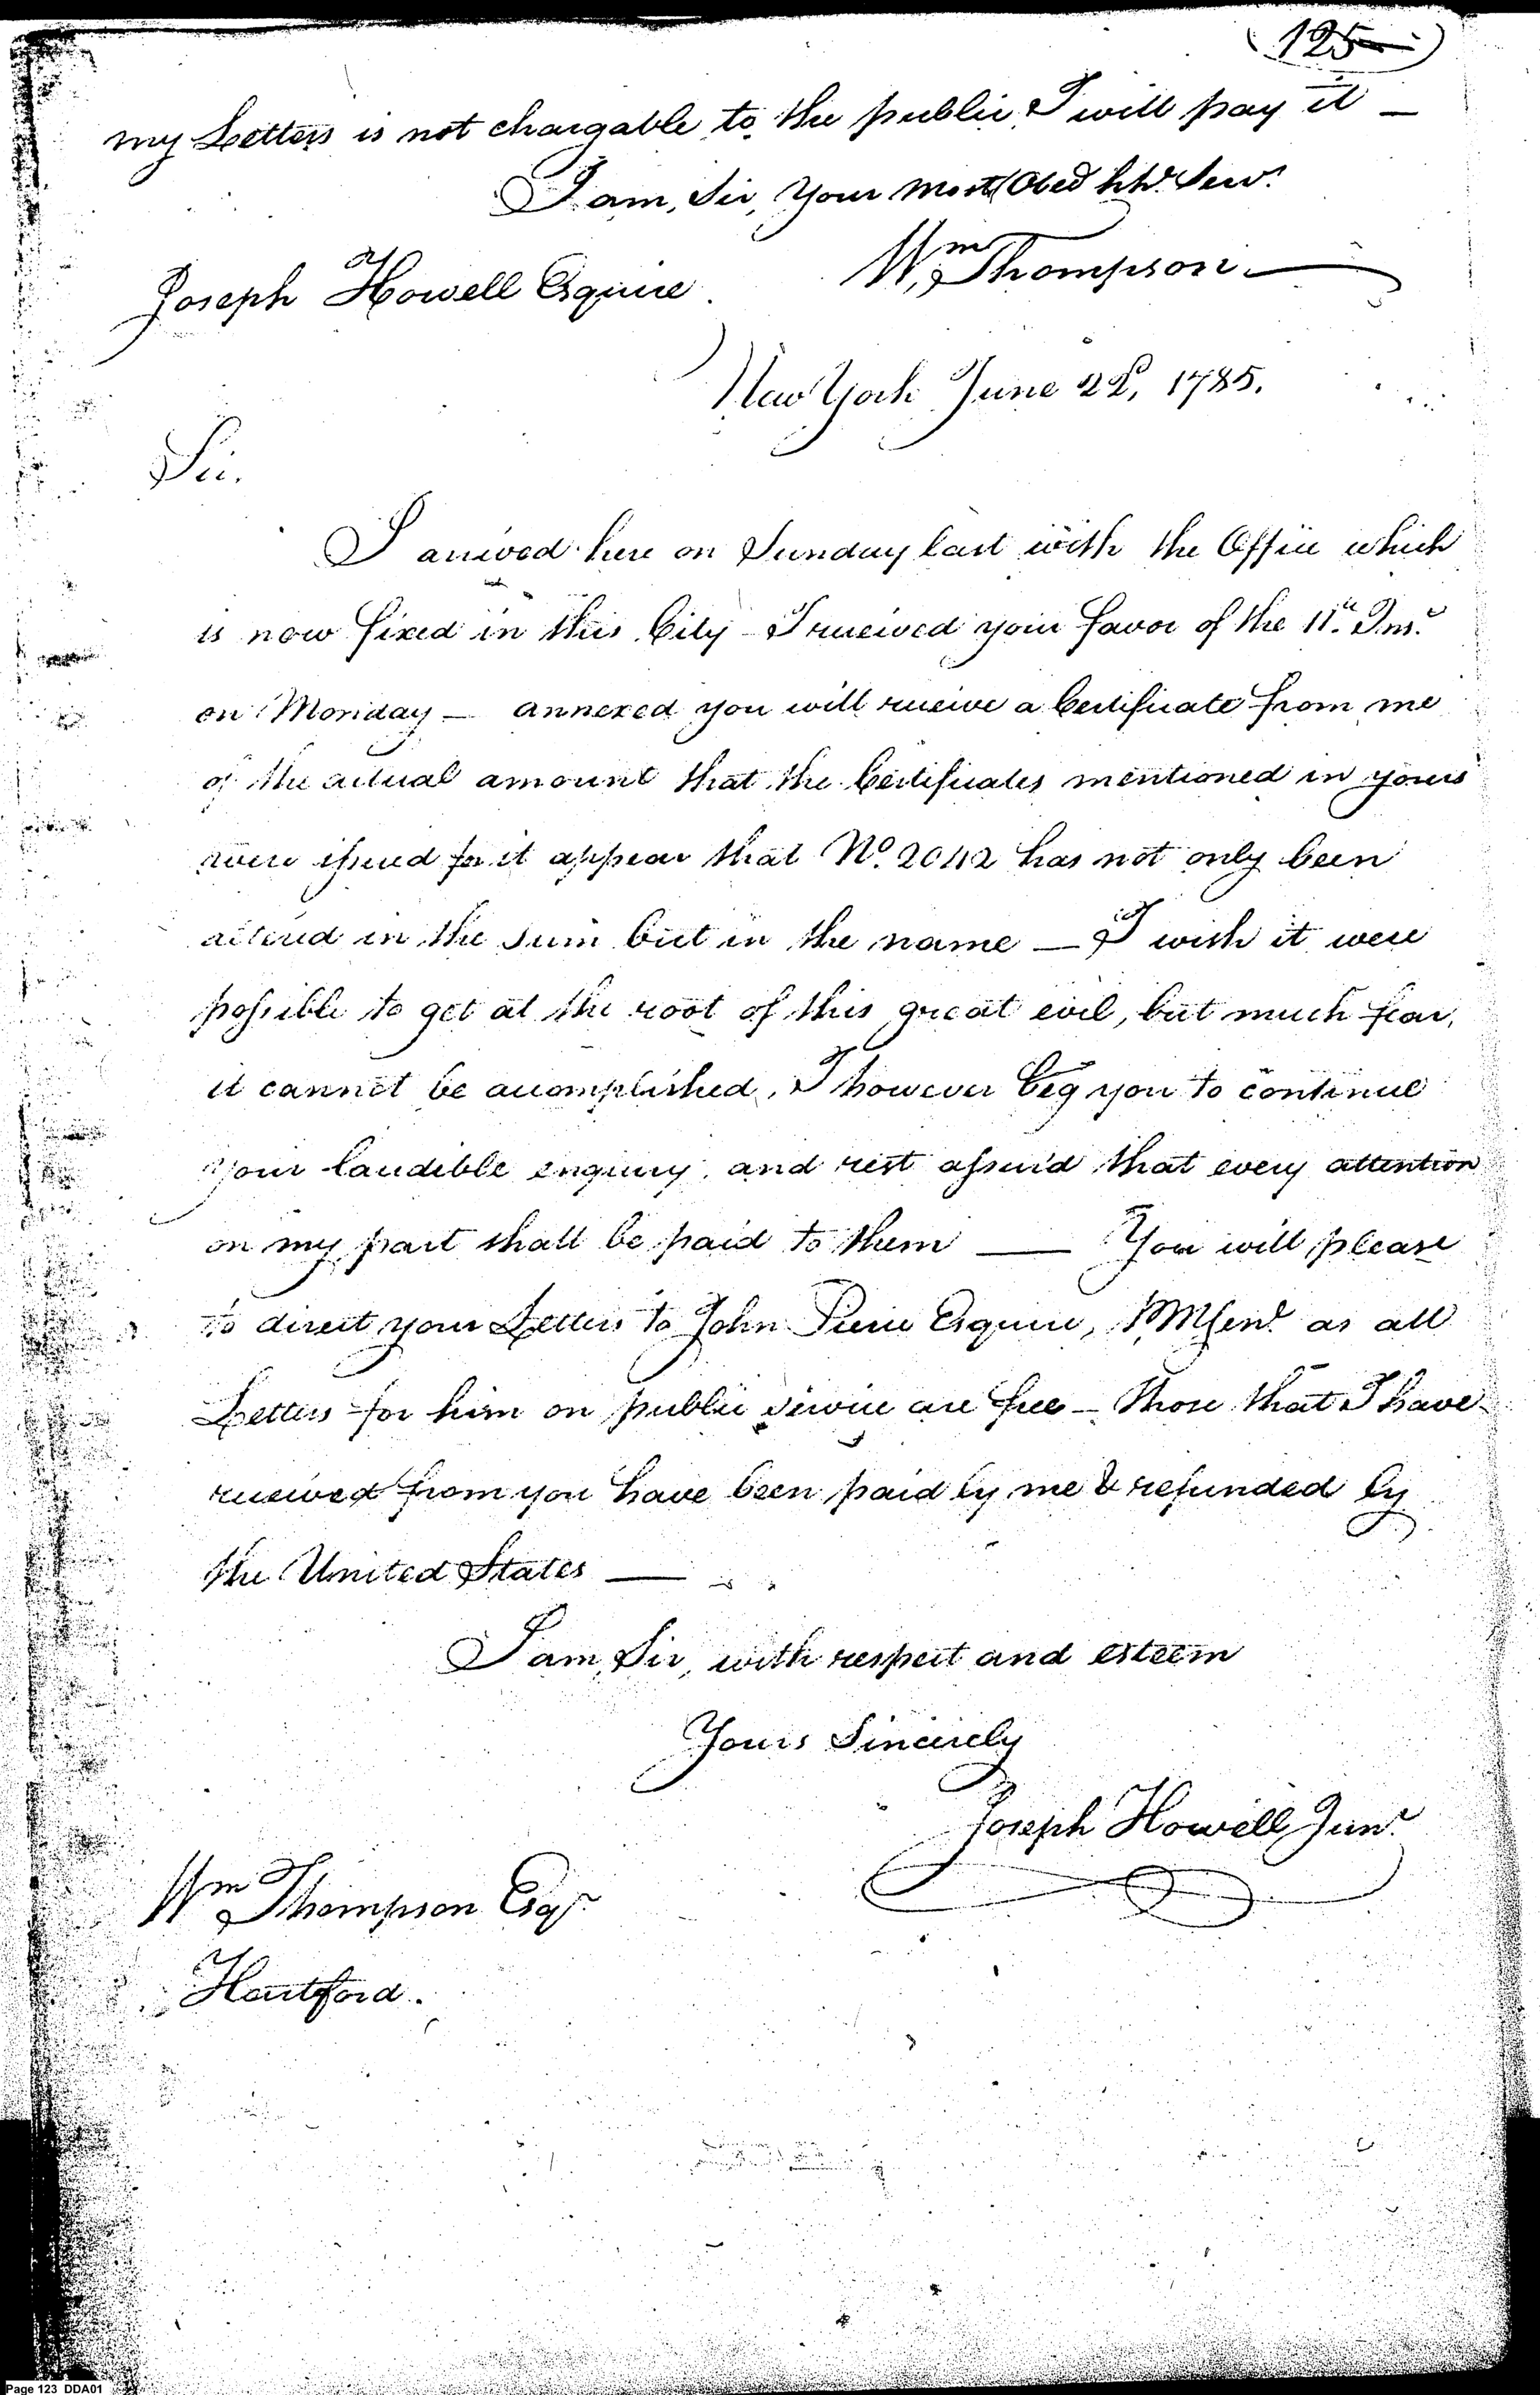 (125)
my Letters is not chargable to the public I will pay it —
I am, Sir, Your most Obed hb. Serv.
Joseph Howell Esquire
Wm Thompson
New York June 22d, 1785.
Sir.
I arrived here on Sunday last with the Office which
is now fixed in this City – I received your favor of the 11th. Inst.
on Monday – annexed you will receive a Certificate from me
of the actual amount that the Certificates mentioned in yours
were issued for it appear that No. 2042 has not only been
altered in the sum but in the name — I wish it were
possible to get at the root of this great evil, but much fear,
it cannot be accomplished, I however beg you to continue
your laudible enquiry, and rest assur'd that every attention
on my part shall be paid to them — You will please
to direct your Letters to John Pierce Esquire, PMGenl. as all
Letters for him on public service are free – Those that I have
received from you have been paid by me & refunded by
the United States —
I am, Sir, with respect and esteem
Yours Sincerely
Joseph Howell Junr
Wm Thompson Esqr.
Hartford.
Page 123 DDA01